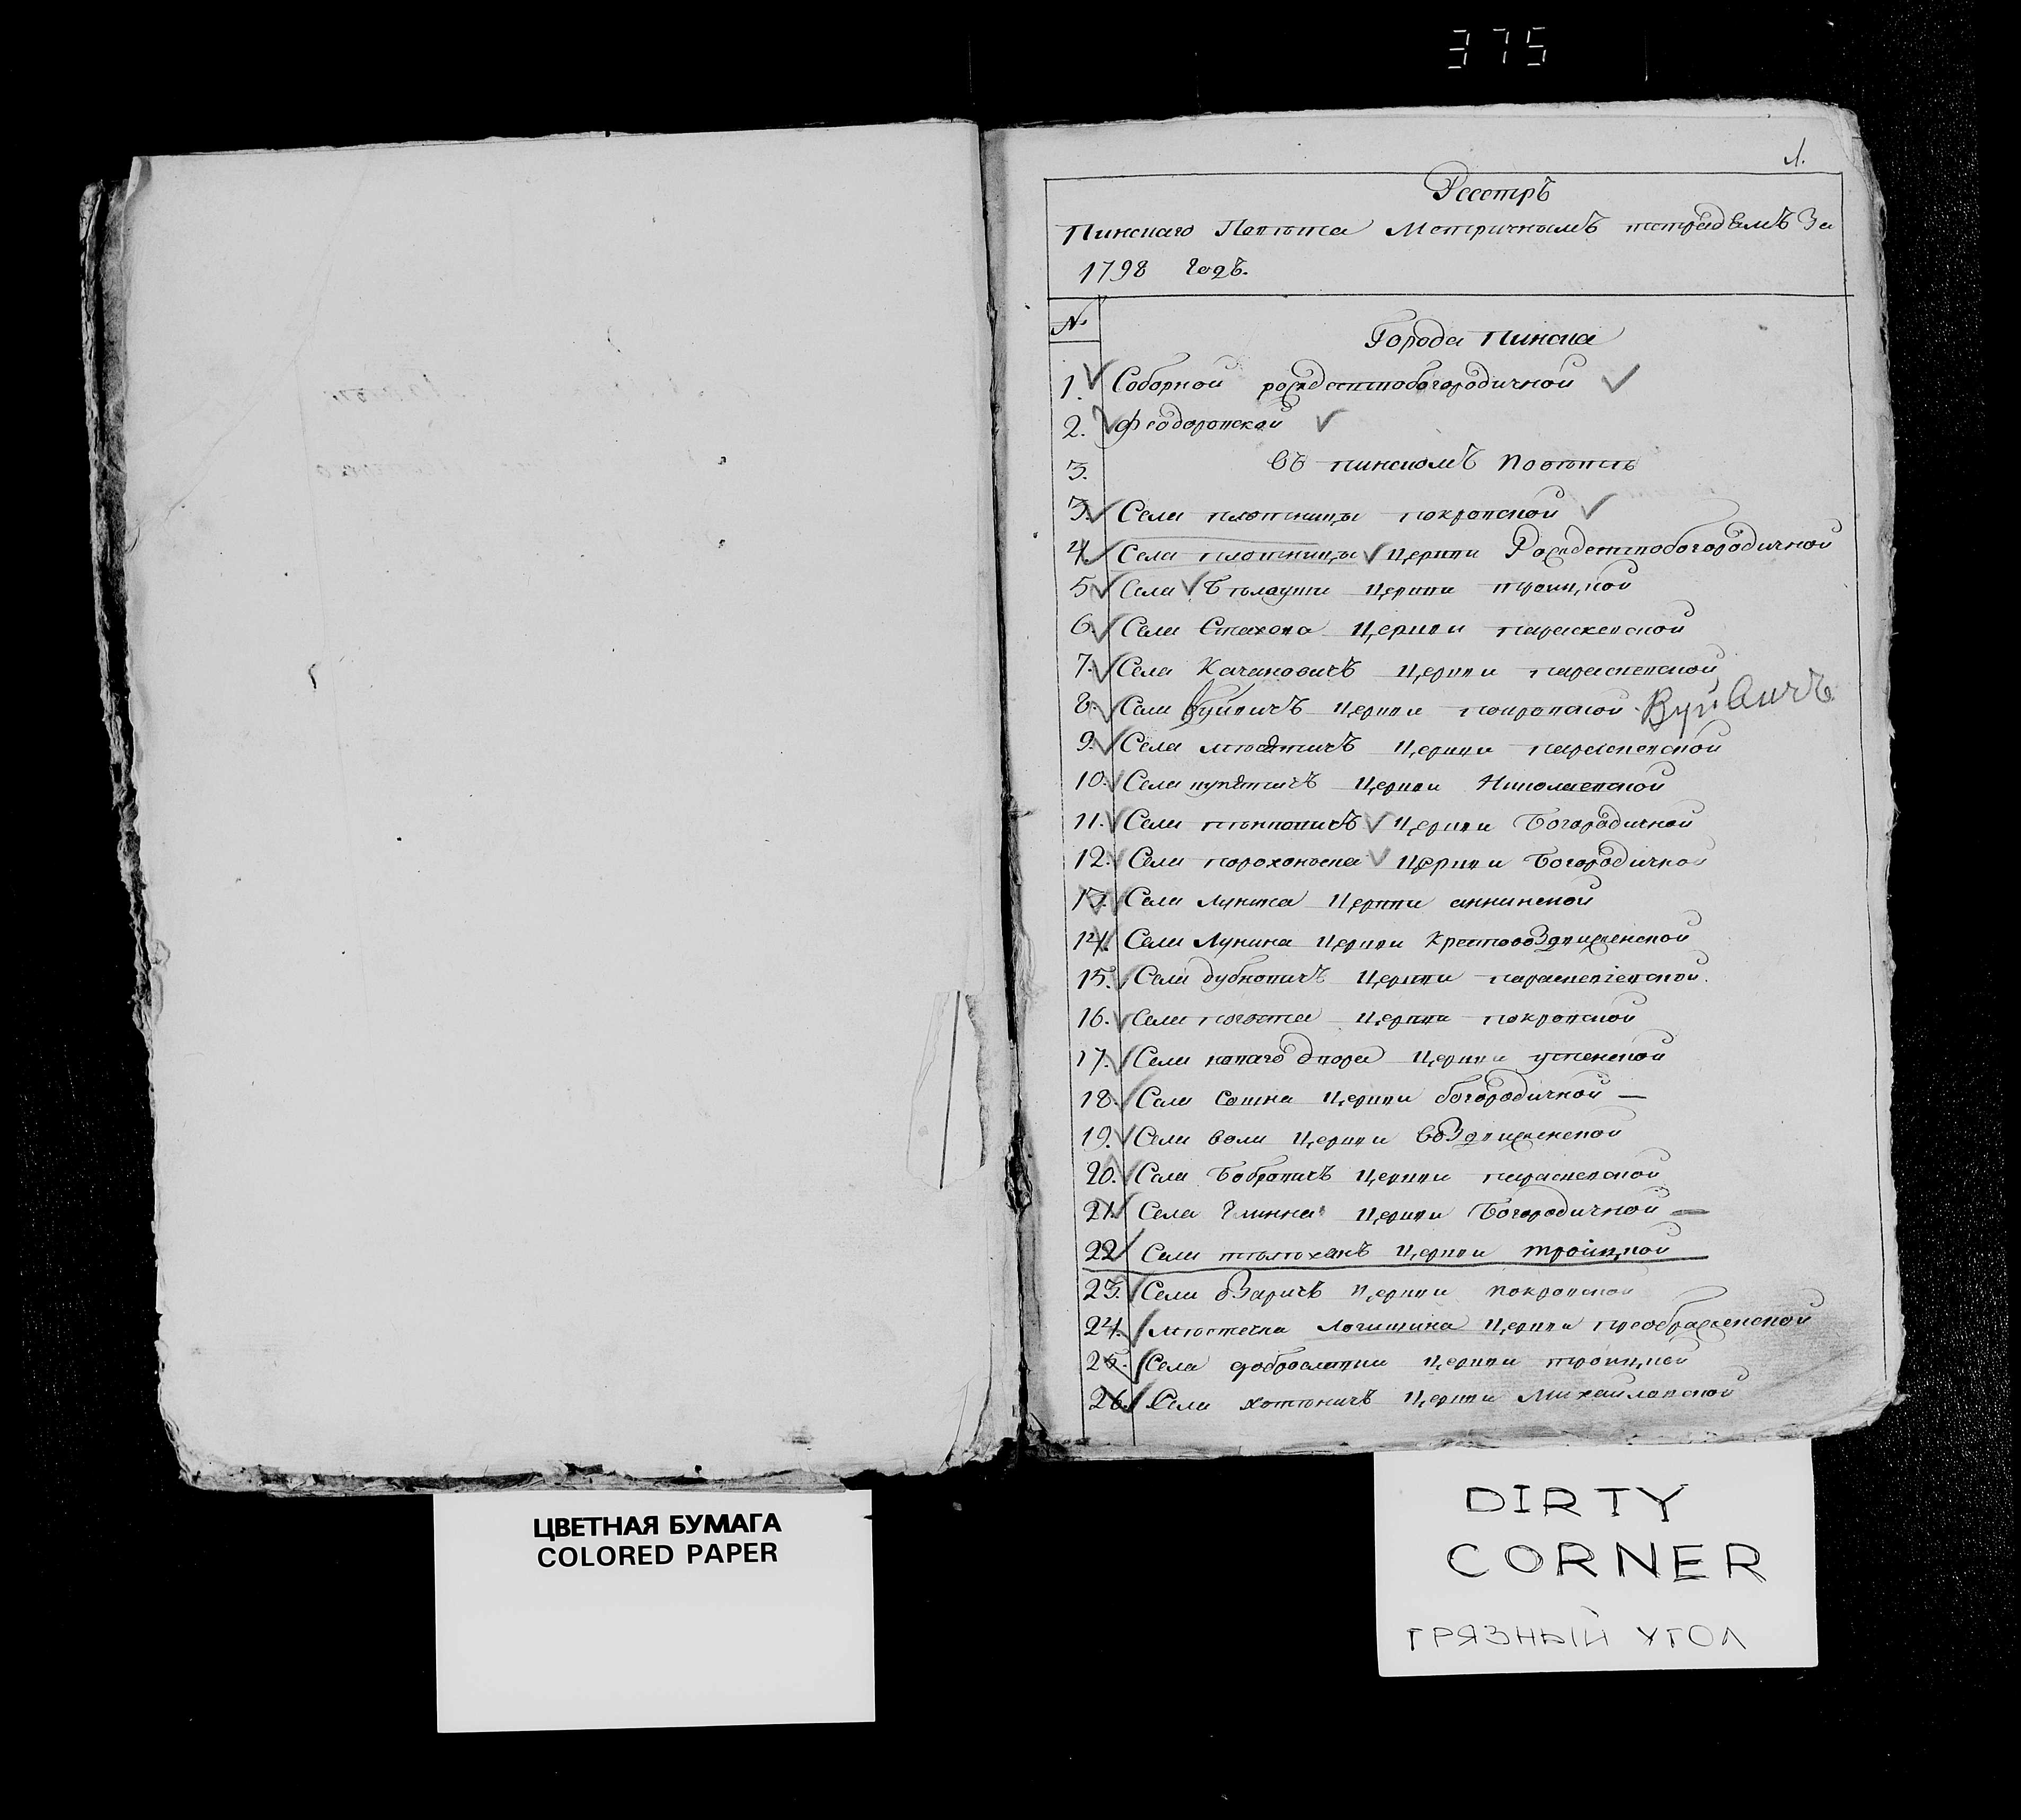 375
1.
Реестръ
Пинскаго Повѣта Метричнымъ тетрадямъ За
1798 годъ.
№.
Города Пинска
1. Соборной рождественобогородичной
2. Феодоровской
3. въ пинскомъ повѣтѣ
3. Села плотницы покровской
4. Села плотницы Церкви Рождественобогородичной
5. Села Церкви троицкой
6. Села Стахова Церкви параскевской
7. Села Качановичъ Церкви параскевской
8. Села Вуйвичъ Церкви покровской Вуйвичъ
9. Села мѣсятичъ Церкви параскевской
10. Села купятичъ Церкви Николаевской
11. Села Церкви Богородичной
12. Села порохонска Церкви Богородичной
13. Села Лунина Церкви аннинской
14. Села Лунина Церкви Крестовоздвиженской
15. Села дубновичъ Церкви параскевіевской.
16. Села погоста Церкви покровской
17. Села новаго двора Церкви успенской
18. Села Сошна Церкви богородичной —
19. Села воли Церкви воздвиженской
20. Села Бобровичъ Церкви параскевской
21. Села Глинна Церкви Богородичной —
22 Села тѣлѣханъ Церкви троицкой
23. Села озаричъ Церкви покровской
24. мѣстечка Логишина Церкви преображенской
25. Села доброславки Церкви троицкой
26. Села хотѣничъ Церкви Михайловской
ЦВЕТНАЯ БУМАГА
COLORED PAPER
DIRTY
CORNER
ГРЯЗНЫЙ УГОЛ